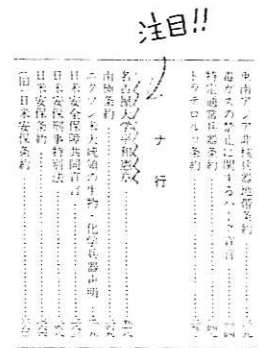 注目!!
東南アジア非核兵器地帯条約
毒ガスの禁止に関するハーグ宣言
特定通常兵器条約
トラテロルコ条約
ナ行
名古屋大学平和憲章
南極条約
ニクソン米大統領の生物・化学兵器声明
日米安全保障共同宣言
日米安保刑事特別法
日米安保条約
(旧)日米安保条約